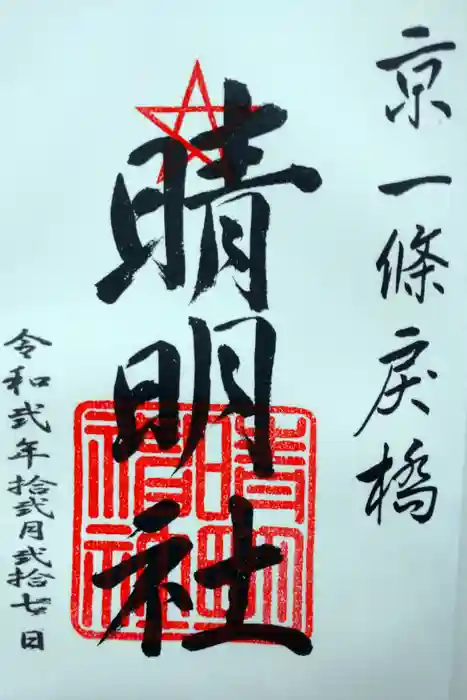 京一條戻橋
晴明社
晴明神社
令和弐年拾弐月弐拾七日